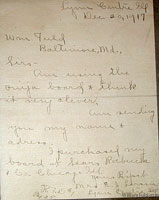 Lynn Centre Ill
Dec 20, 1919
Wm Fuld
Baltimore, Md.,
Sirs—
Am using the
ouija board & think
it very clever.
Am sending
you my name &
adress.
I purchased my
board at Sears Roebuck
& Co Chicago Ill
Mrs
Lynn Centre